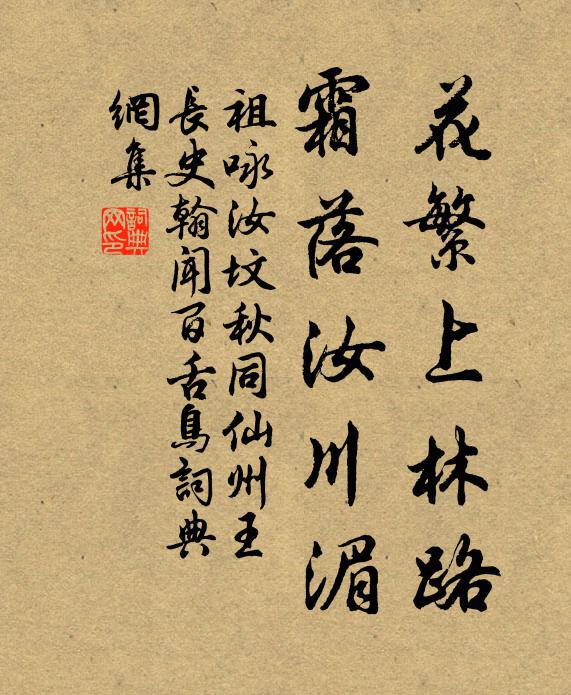 花繁上林路
霜落汝川湄
祖咏汝坟秋同仙州王
長史翰闻百舌鳥詞典
網集
詞典
网印